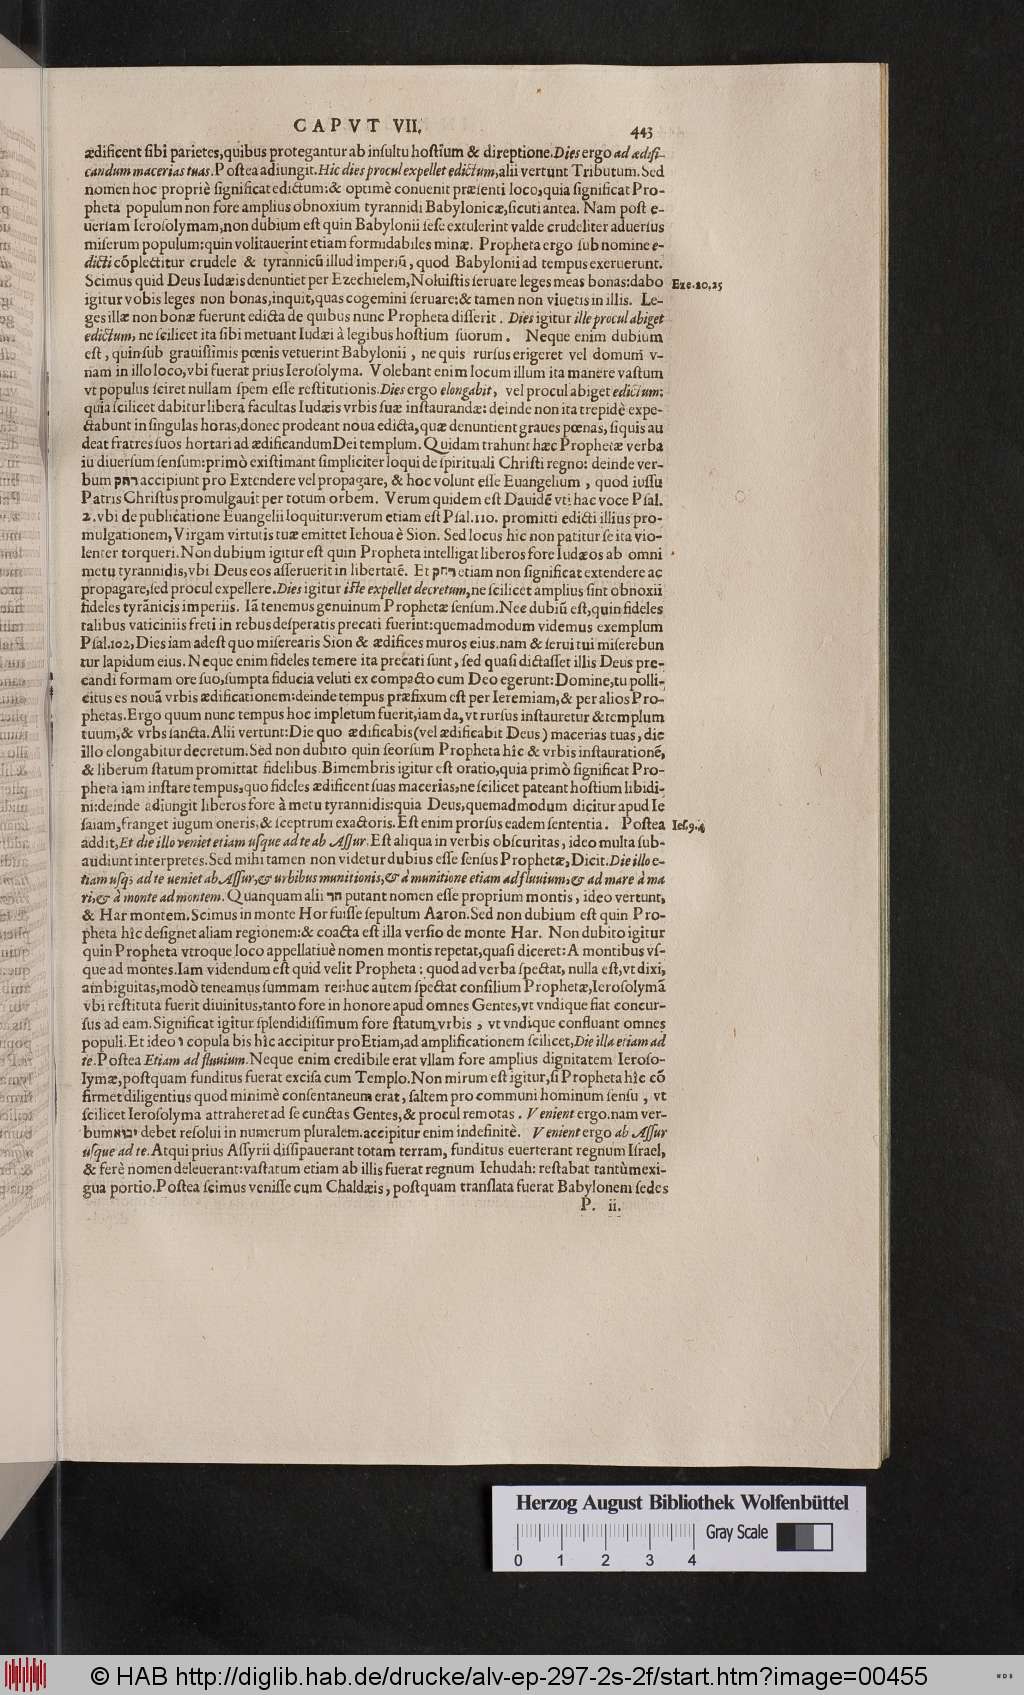 CAPVT VII.
443
ædificent sibi parietes,quibus protegantur ab insultu hostium & direptione.Dies ergo ad ædifi-
candum macerias tuas.Postea adiungit.Hic dies procul expellet edictum,alii vertunt Tributum.Sed
nomen hoc propriè significat edictum:& optimè conuenit præsenti loco,quia significat Pro-
pheta populum non fore amplius obnoxium tyrannidi Babylonicæ,sicuti antea. Nam post e-
uersam Ierosolymam,non dubium est quin Babylonii sese extulerint valde crudeliter aduersus
miserum populum:quin volitauerint etiam formidabiles minæ. Propheta ergo sub nomine e-
dicti cōplectitur crudele & tyrannicū illud imperiū, quod Babylonii ad tempus exeruerunt.
Scimus quid Deus Iudæis denuntiet per Ezechielem,Noluistis seruare leges meas bonas:dabo
Eze.20,25
igitur vobis leges non bonas,inquit,quas cogemini seruare:& tamen non viuetis in illis. Le-
ges illæ non bonæ fuerunt edicta de quibus nunc Propheta disserit. Dies igitur ille procul abiget
edictum, ne scilicet ita sibi metuant Iudæi à legibus hostium suorum. Neque enim dubium
est, quin sub grauissimis pœnis vetuerint Babylonii, ne quis rursus erigeret vel domum v-
nam in illo loco,vbi fuerat prius Ierosolyma. Volebant enim locum illum ita manere vastum
vt populus sciret nullam spem esse restitutionis.Dies ergo elongabit, vel procul abiget edictum:
quia scilicet dabitur libera facultas Iudæis vrbis suæ instaurandæ: deinde non ita trepidè expe-
ctabunt in singulas horas,donec prodeant noua edicta,quæ denuntient graues pœnas, siquis au
deat fratres suos hortari ad ædificandum Dei templum. Quidam trahunt hæc Prophetæ verba
iu diuersum sensum:primò existimant simpliciter loqui de spirituali Christi regno: deinde ver-
bum רחק accipiunt pro Extendere vel propagare, & hoc volunt esse Euangelium, quod iussu
Patris Christus promulgauit per totum orbem. Verum quidem est Dauidē vti hac voce Psal.
2.vbi de publicatione Euangelii loquitur:verum etiam est Psal.110. promitti edicti illius pro-
mulgationem,Virgam virtutis tuæ emittet Iehoua è Sion. Sed locus hic non patitur se ita vio-
lenter torqueri.Non dubium igitur est quin Propheta intelligat liberos fore Iudæos ab omni
metu tyrannidis,vbi Deus eos asseruerit in libertatē. Et רחק etiam non significat extendere ac
propagare,sed procul expellere.Dies igitur iste expellet decretum,ne scilicet amplius sint obnoxii
fideles tyrānicis imperiis. Iā tenemus genuinum Prophetæ sensum.Nec dubiū est,quin fideles
talibus vaticiniis freti in rebus desperatis precati fuerint:quemadmodum videmus exemplum
Psal.102,Dies iam adest quo miserearis Sion & ædifices muros eius.nam & serui tui miserebun
tur lapidum eius. Neque enim fideles temere ita precati sunt, sed quasi dictasset illis Deus pre-
candi formam ore suo,sumpta fiducia veluti ex compacto cum Deo egerunt:Domine,tu polli-
citus es nouā vrbis ædificationem:deinde tempus præfixum est per Ieremiam,& per alios Pro-
phetas.Ergo quum nunc tempus hoc impletum fuerit,iam da,vt rursus instauretur & templum
tuum,& vrbs sancta.Alii vertunt:Die quo ædificabis(vel ædificabit Deus) macerias tuas, die
illo elongabitur decretum.Sed non dubito quin seorsum Propheta hîc & vrbis instaurationē,
& liberum statum promittat fidelibus.Bimembris igitur est oratio,quia primò significat Pro-
pheta iam instare tempus,quo fideles ædificent suas macerias,ne scilicet pateant hostium libidi-
ni:deinde adiungit liberos fore à metu tyrannidis:quia Deus,quemadmodum dicitur apud Ie
saiam,franget iugum oneris,& sceptrum exactoris.Est enim prorsus eadem sententia. Postea
Ies.9.4
addit,Et die illo veniet etiam vsque ad te ab Assur.Est aliqua in verbis obscuritas, ideo multa sub-
audiunt interpretes.Sed mihi tamen non videtur dubius esse sensus Prophetæ,Dicit.Die illo e-
tiam usq; ad te ueniet ab Assur,& urbibus munitionis,& à munitione etiam ad fluuium,& ad mare à ma
ri,& à monte ad montem.Quanquam alii הר putant nomen esse proprium montis, ideo vertunt,
& Har montem.Scimus in monte Hor fuisse sepultum Aaron.Sed non dubium est quin Pro-
pheta hîc designet aliam regionem:& coacta est illa versio de monte Har. Non dubito igitur
quin Propheta vtroque loco appellatiuè nomen montis repetat,quasi diceret:A montibus vs-
que ad montes.Iam videndum est quid velit Propheta: quod ad verba spectat, nulla est,vt dixi,
ambiguitas,modò teneamus summam rei:huc autem spectat consilium Prophetæ,Ierosolymā
vbi restituta fuerit diuinitus,tanto fore in honore apud omnes Gentes,vt vndique fiat concur-
sus ad eam.Significat igitur splendidissimum fore statum vrbis, vt vndique confluant omnes
populi.Et ideo ו copula bis hîc accipitur pro Etiam,ad amplificationem scilicet,Die illa etiam ad
te.Postea Etiam ad fluuium.Neque enim credibile erat vllam fore amplius dignitatem Ieroso-
lymæ,postquam funditus fuerat excisa cum Templo.Non mirum est igitur,si Propheta hîc cō
firmet diligentius quod minimè consentaneum erat, saltem pro communi hominum sensu, vt
scilicet Ierosolyma attraheret ad se cunctas Gentes,& procul remotas. Venient ergo.nam ver-
bum יבוא debet resolui in numerum pluralem.accipitur enim indefinitè. Venient ergo ab Assur
usque ad te.Atqui prius Assyrii dissipauerant totam terram, funditus euerterant regnum Israel,
& ferè nomen deleuerant:vastatum etiam ab illis fuerat regnum Iehudah: restabat tantùm exi-
gua portio.Postea scimus venisse cum Chaldæis, postquam translata fuerat Babylonem sedes
P. ii.
Herzog August Bibliothek Wolfenbüttel
Gray Scale
0 1 2 3 4
© HAB http://diglib.hab.de/drucke/alv-ep-297-2s-2f/start.htm?image=00455
WDB